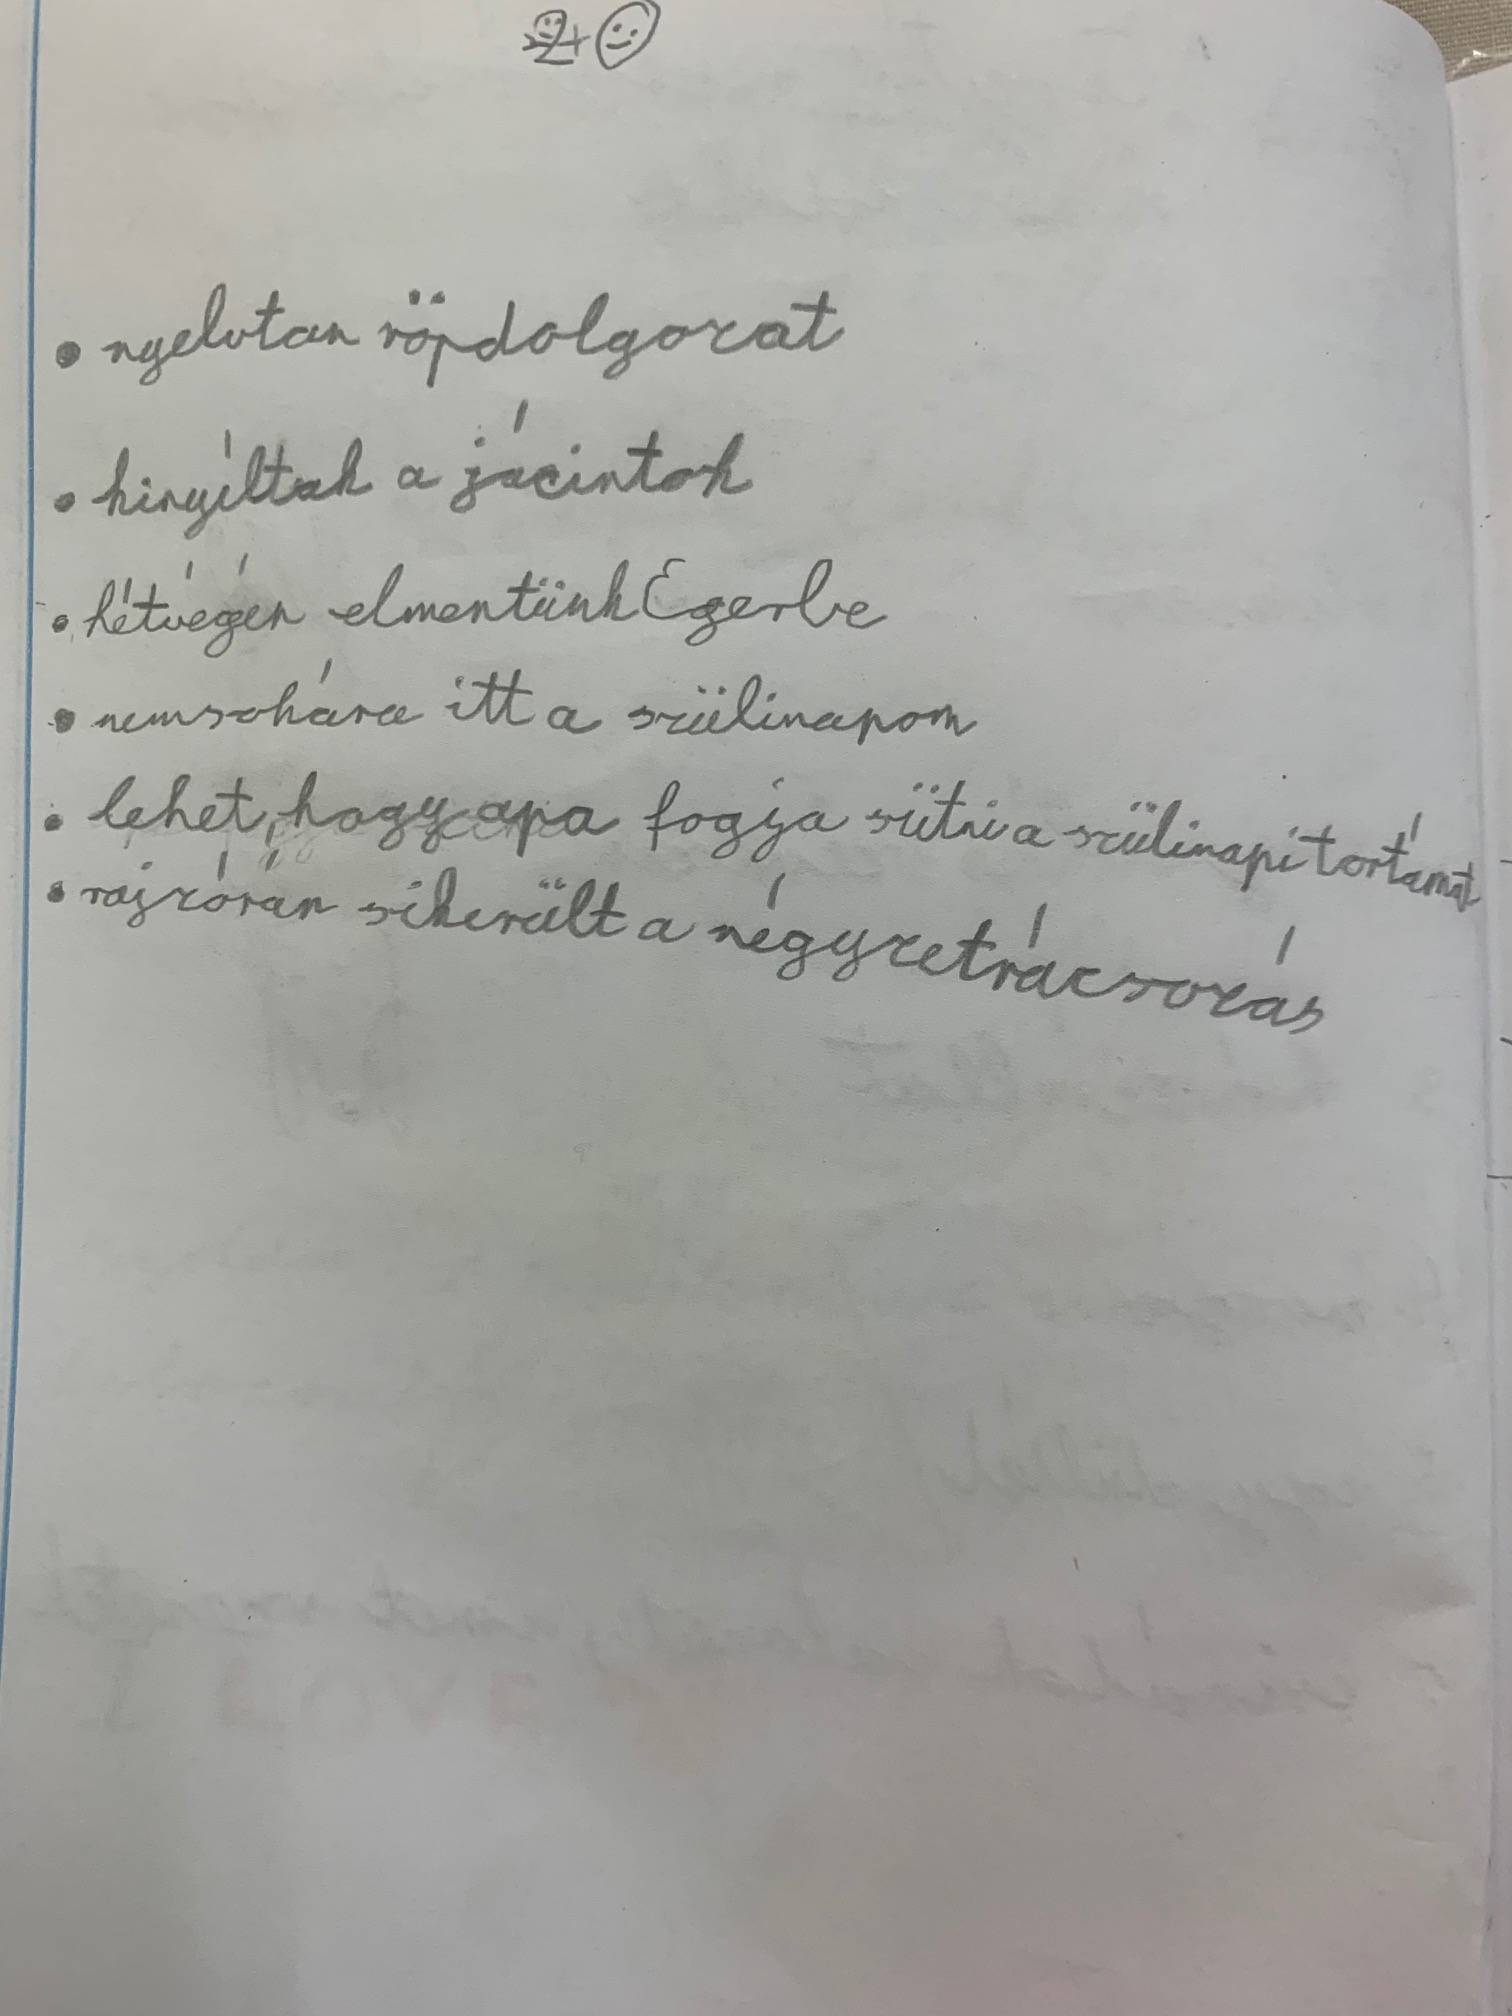 • nyelvtan röpdolgozat
• kinyíltak a jácintok
• hétvégén elmentünk Egerbe
• nemsokára itt a szülinapom
• lehet, hogy apa fogja sütni a szülinapi tortámat
• rajzórán sikerült a négyzetrácsozás